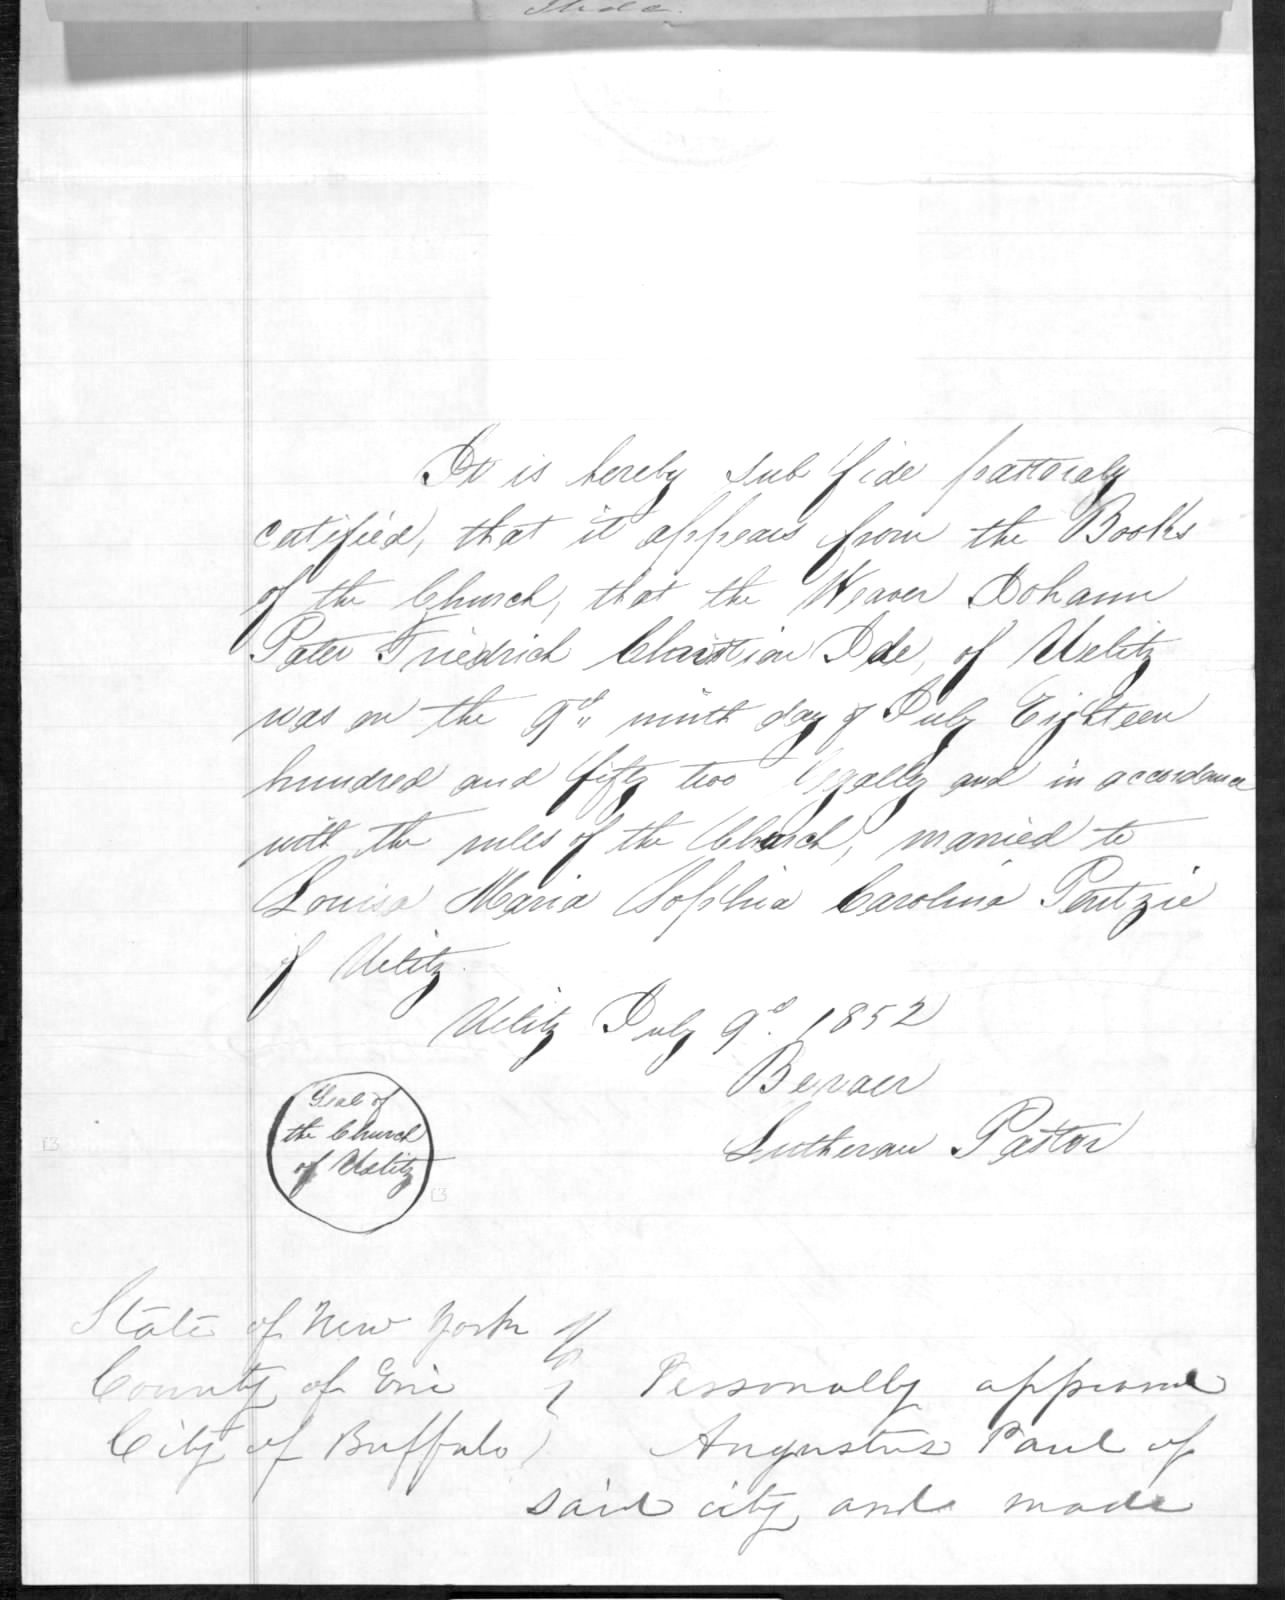 It is hereby sub fide pastoraly
certified, that it appears from the Books
of the Church, that the Weaver Johann
Pater Friedrich Christian Ide, of Uelitz
was on the 9d" ninth day of July Eighteen
hundred and fifty two legally and in accordance
with the rules of the Church, married to
Louisa Maria Sophia Carolina Pentzie
of Uelitz.
Uelitz July 9d. 1852
Lutheran Pastor
Seal of
the Church
of Uelitz
State of New York
County of Erie } Personally appeared
City of Buffalo ) Augustus Paul of
said city and made